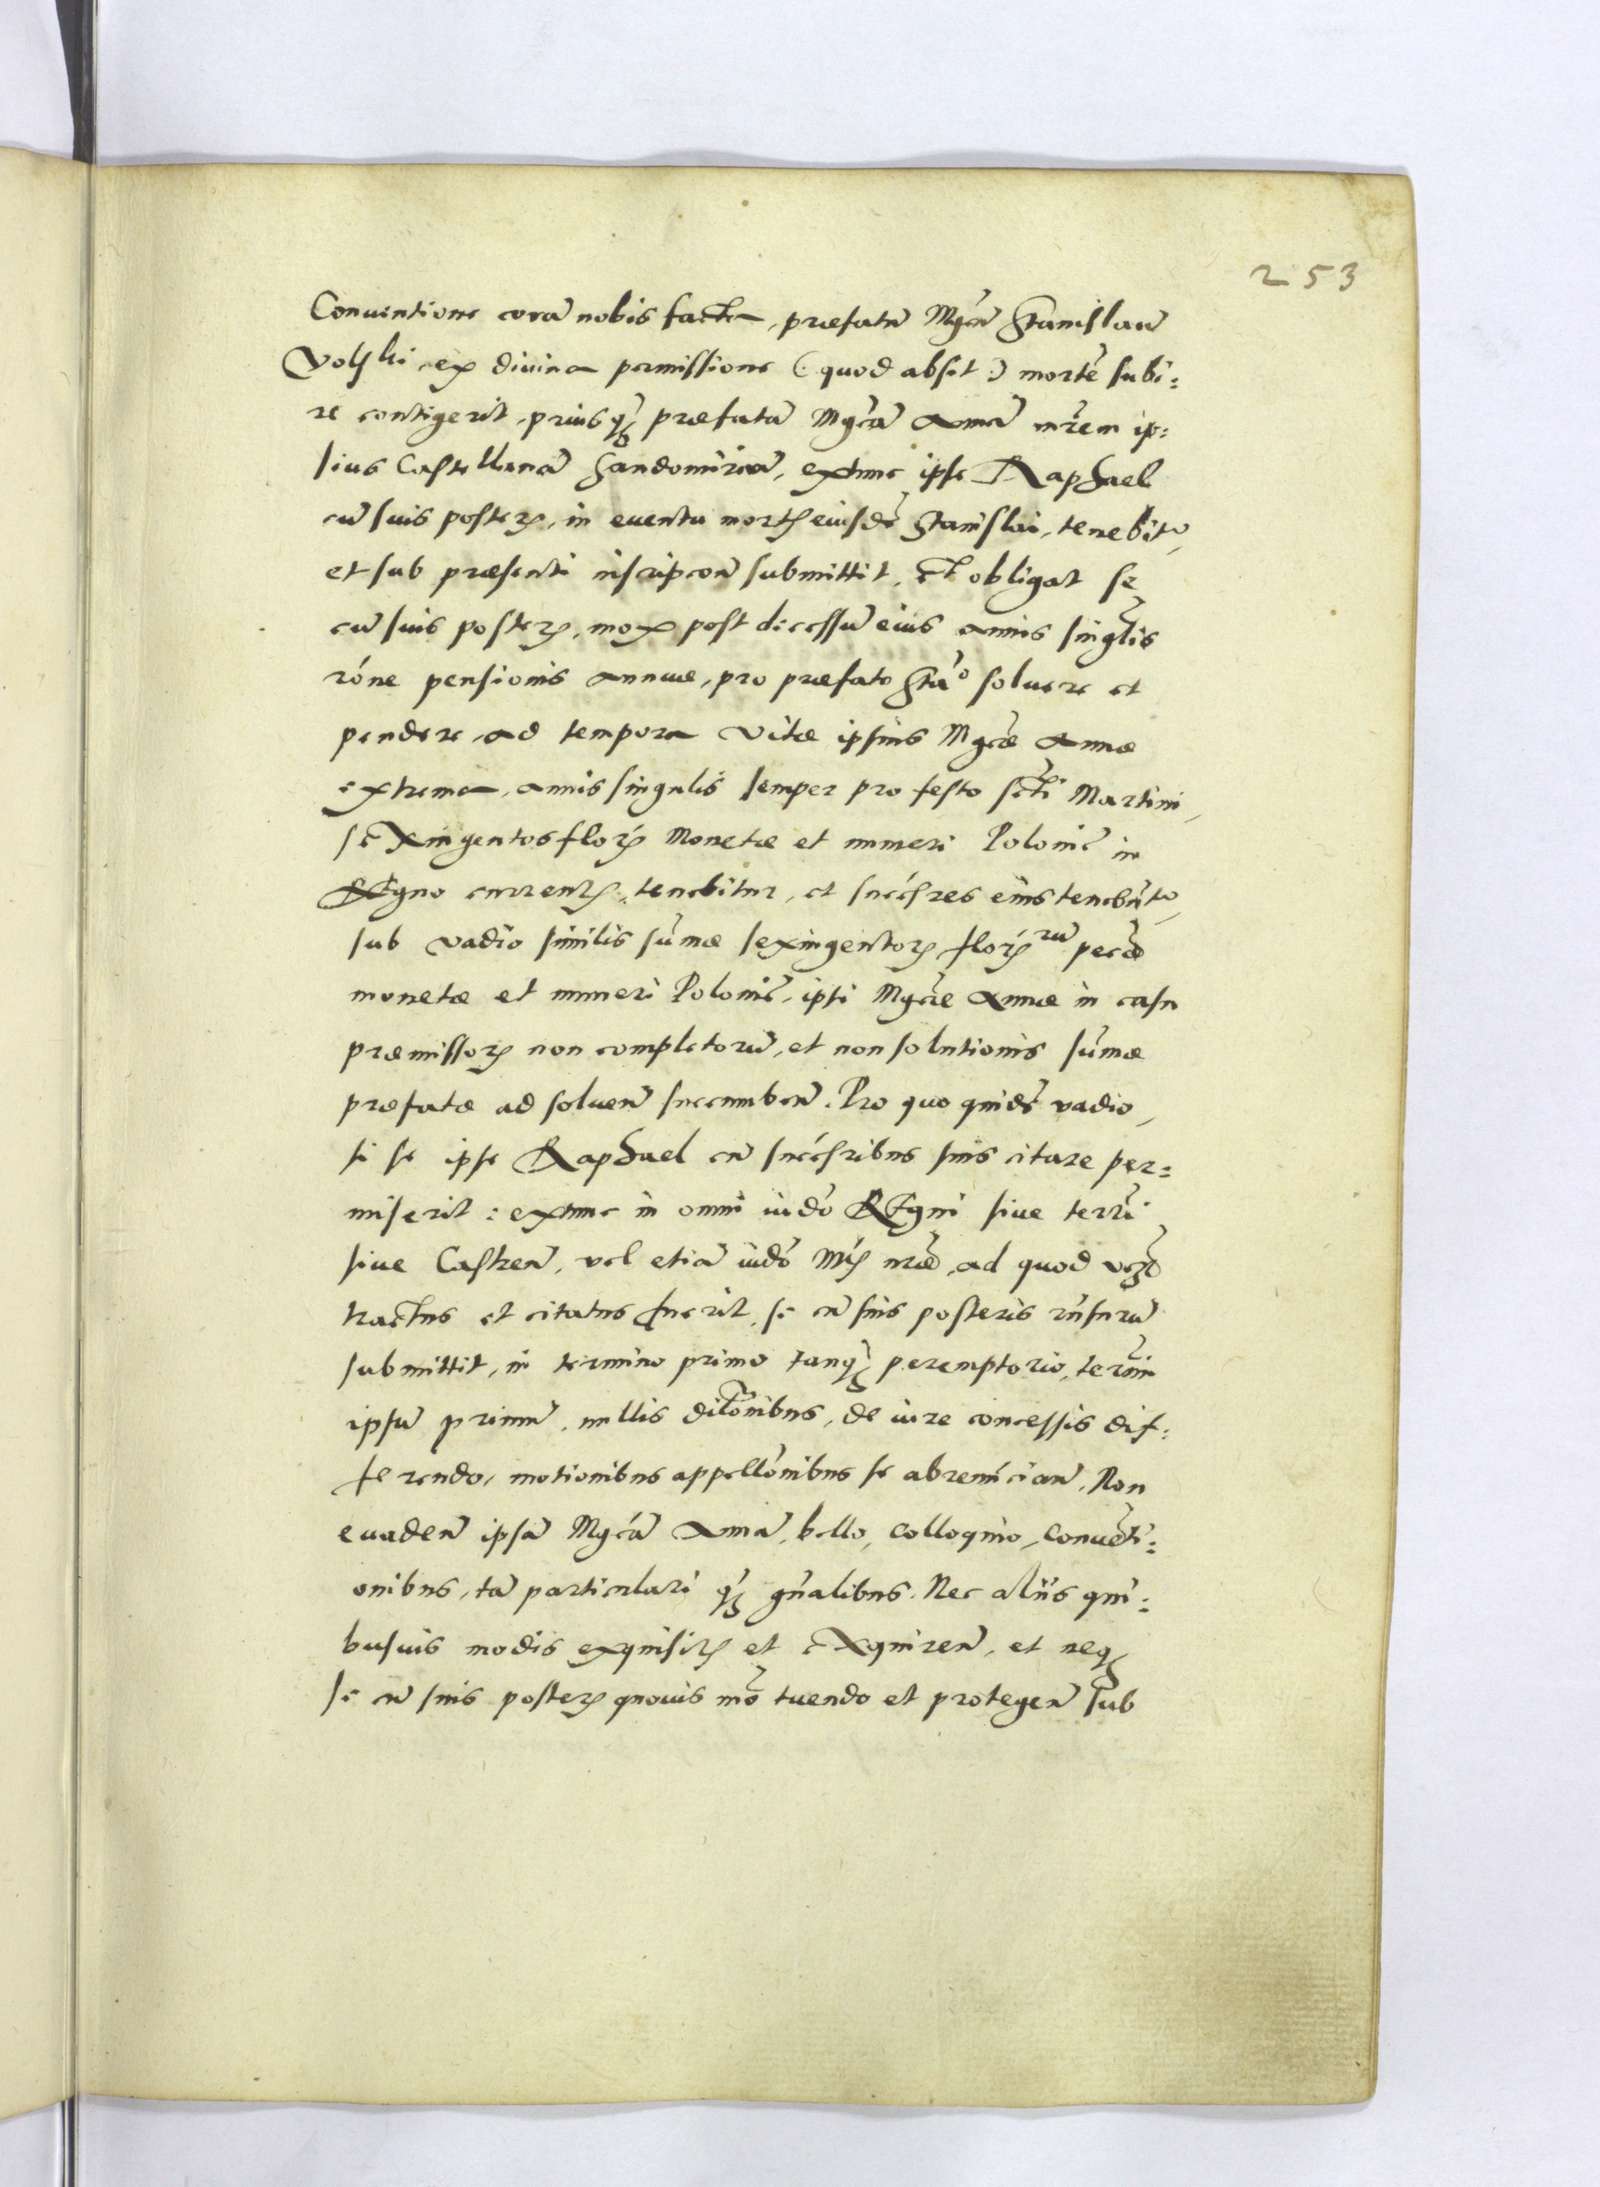 253
Conventione corā nobis facta, præfatū Mgcū Stanislaū
Volski ex divina permissione (: quod absit :) mortē subi:
re contigerit, priusq̃ȝ præfatā Mgcā Annā mr̄em ip:
sius Castellanā Sandomirieñ, extunc ipse Raphael
cū suis posterꝭ, in eventu mortꝭ eiusdē Stanislai, tenebitr,
et sub præsenti inscripcoñe submittit, et obligat se
cū suis posterꝭ, mox post decessū eius annis singl̃is
rône pensionis annuæ, pro præfato Sta͂o solvere et
pendere, ad tempora vitæ ipsius Mgcæ Annæ
extrema, annis singulis semper pro festo sc̃ti Martini,
sexingentos florꝭ Monetæ et numeri Polonic̃ in
Regno currentꝭ, tenebitur, et succẽres eius tenebũtr,
sub vadio similis sum̃æ sexingentorꝭ florꝭrū pecũæ
monetæ et numeri Polonic̃, ipsi Mgcæ Annæ in casu
præmissorꝭ non completorū, et non solutionis sum̃æ
præfatæ ad solveñ succumbeñ. Pro quo quidē vadio,
si se ipse Raphael cū succẽribus suis citare per:
miserit: extunc in omni iudõ Regni sive terrĩ
sive Castreñ, vel etiā iudõ Mtꝭ nr̃æ, ad quod vcȝ
tractus et citatus fuerit, se cū suis posteris rñsurū
submittit, in termino primo tanq̃ȝ peremptorio, term̃i
ipsū primū, nullis dilõnibus, de iure concessis dif:
ferendo, motionibus appellõnibus se abreñcianñ, Non
evadeñ ipsā Mgcā Annā, bello, colloquio, Convẽti:
onibus, tā particulari q̃ȝ gñalibus. Nec aliis qui:
busvis modis exquisitꝭ et exquireñ, et neqȝ
se cū suis posterꝭ quovis mõ tuendo et protegeñ sub